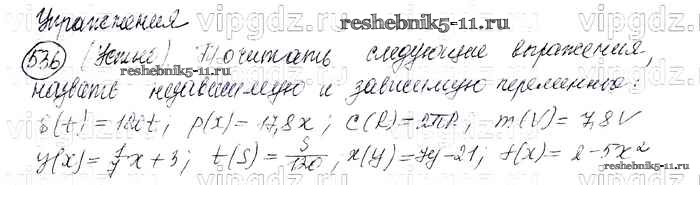 Упражнения
536 (Устно) Прочитать следующие выражения,
назвать независимую и зависимую переменные:
S(t) = 120t; p(x) = 17,8x; C(R) = 2πR; m(V) = 7,8V
y(x) = 1/7 x + 3; t(S) = S/120; x(y) = 7y - 21; f(x) = 2 - 5x²
vipgdz.ru
reshebnik5-11.ru